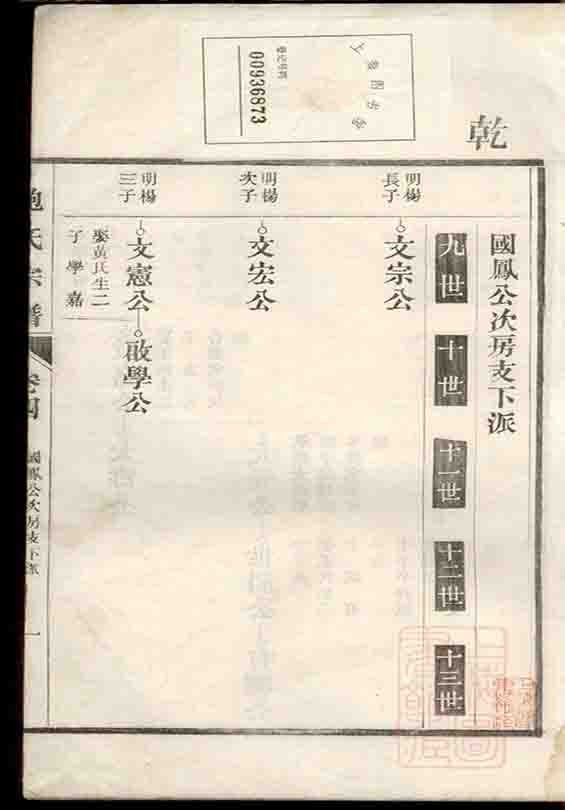 乾
登記號碼
00936873
上海圖書館
國鳳公次房支下派
九世
十世
十一世
十二世
十三世
明楊
長子
文宗公
明楊
次子
文宏公
明楊
三子
文憲公
啟學公
娶黃氏生二
子 學 嘉
鮑氏宗譜
卷四
國鳳公次房支下派
一